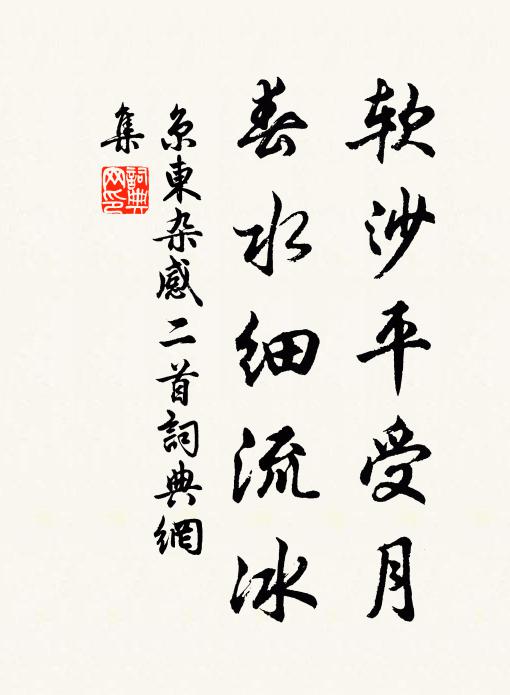 软沙平受月
春水细流冰
京東杂感二首詞典網
集
詞典
网印